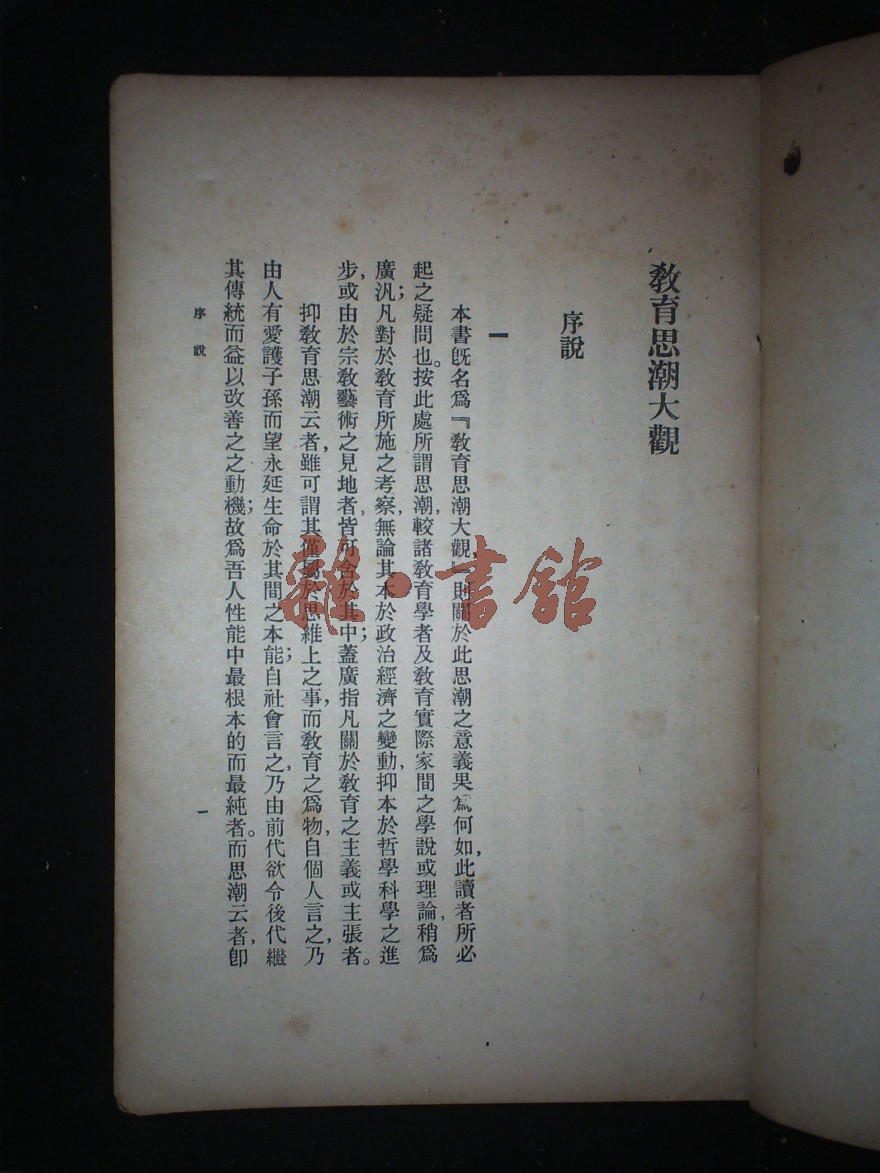 教育思潮大觀
序說
一
本書旣名爲『教育思潮大觀』則關於此思潮之意義果爲何如，此讀者所必
起之疑問也。按此處所謂思潮，較諸教育學者及教育實際家間之學說或理論，稍爲
廣汎；凡對於教育所施之考察，無論其本於政治經濟之變動，抑本於哲學科學之進
步，或由於宗教藝術之見地者，皆可含於其中；蓋廣指凡關於教育之主義或主張者。
抑教育思潮云者，雖可謂其僅屬於思維上之事，而教育之爲物，自個人言之，乃
由人有愛護子孫而望永延生命於其間之本能；自社會言之，乃由前代欲令後代繼
其傳統而益以改善之之動機；故爲吾人性能中最根本的而最純者。而思潮云者，卽
序說
一
雜·書館